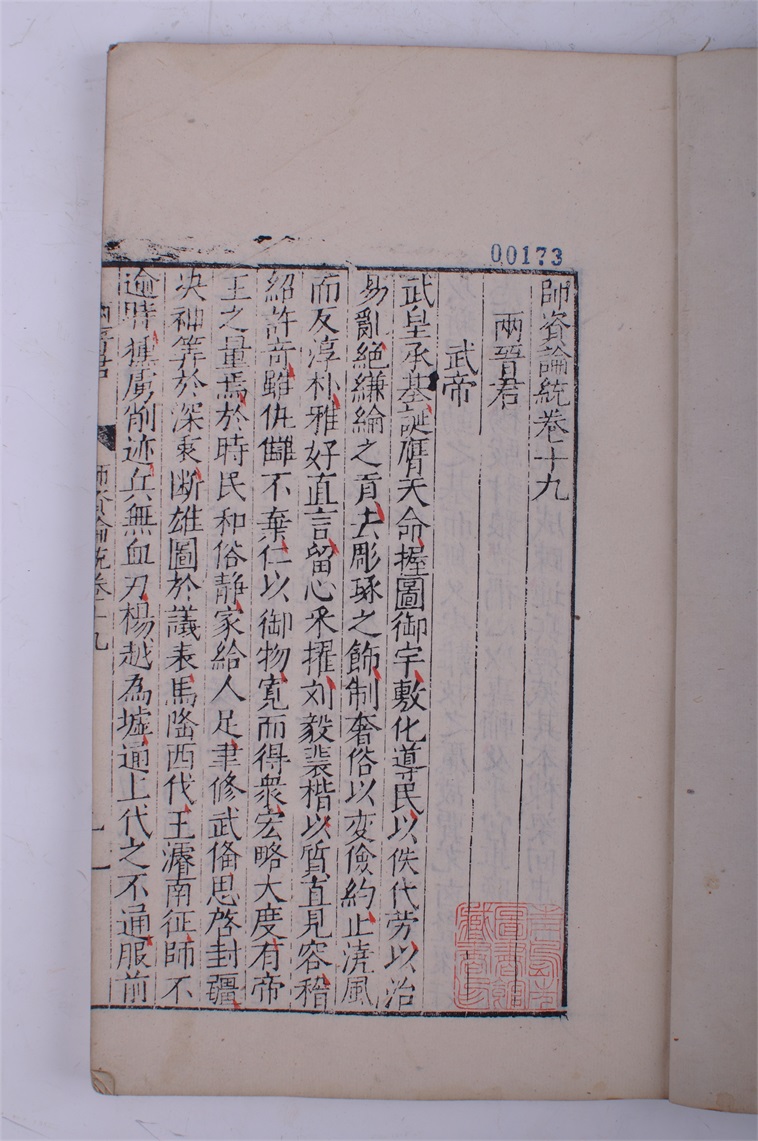 00173
師資論統卷十九
兩晉君
武帝
武皇承基誕膺天命握圖御宇敷化導民以佚代勞以治
易亂絕縑綸之貢去彫琢之飾制奢俗以変儉約止澆風
而反淳朴雅好直言留心采擢刘毅裴楷以質直見容嵇
紹許竒雖仇讎不棄仁以御物寬而得衆宏略大度有帝
王之量焉於時民和俗静家給人足聿修武俻思啓封疆
决神筭於深衷断雄圖於議表馬隆西伐王濬南征師不
逾時獯虜削迹兵無血刃楊越為墟通上代之不通服前
師資論統卷十九